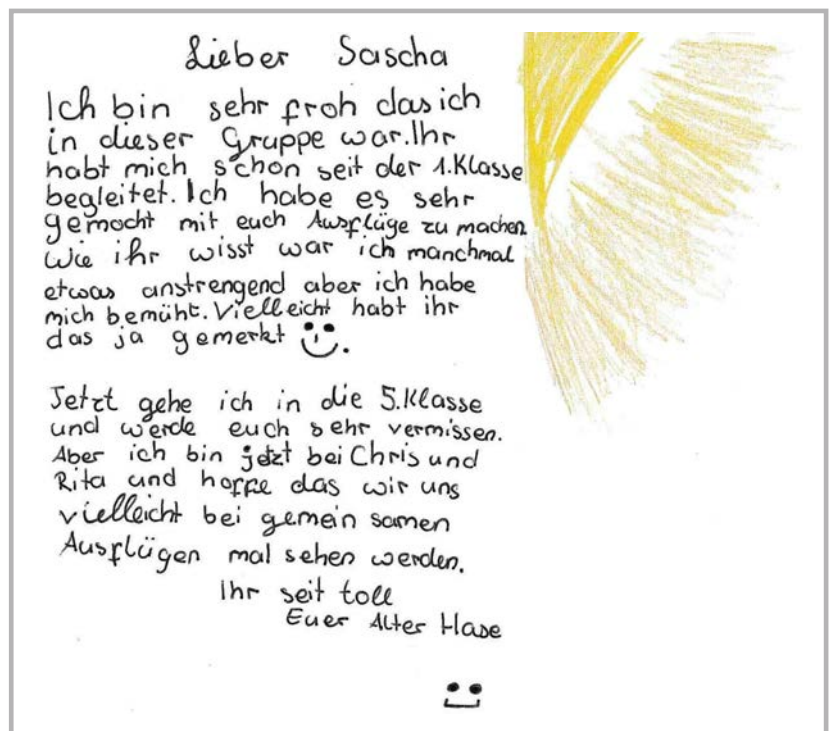 Lieber Sascha
Ich bin sehr froh das ich
in dieser Gruppe war. Ihr
habt mich schon seit der 1. Klasse
begleitet. Ich habe es sehr
gemocht mit euch Ausflüge zu machen
Wie ihr wisst war ich manchmal
etwas anstrengend aber ich habe
mich bemüht. Vielleicht habt ihr
das ja gemerkt
Jetzt gehe ich in die 5. Klasse
und werde euch sehr vermissen.
Aber ich bin jetzt bei Chris und
Rita und hoffe das wir uns
vielleicht bei gemein samen
Ausflügen mal sehen werden.
Ihr seit toll
Euer Alter Hase